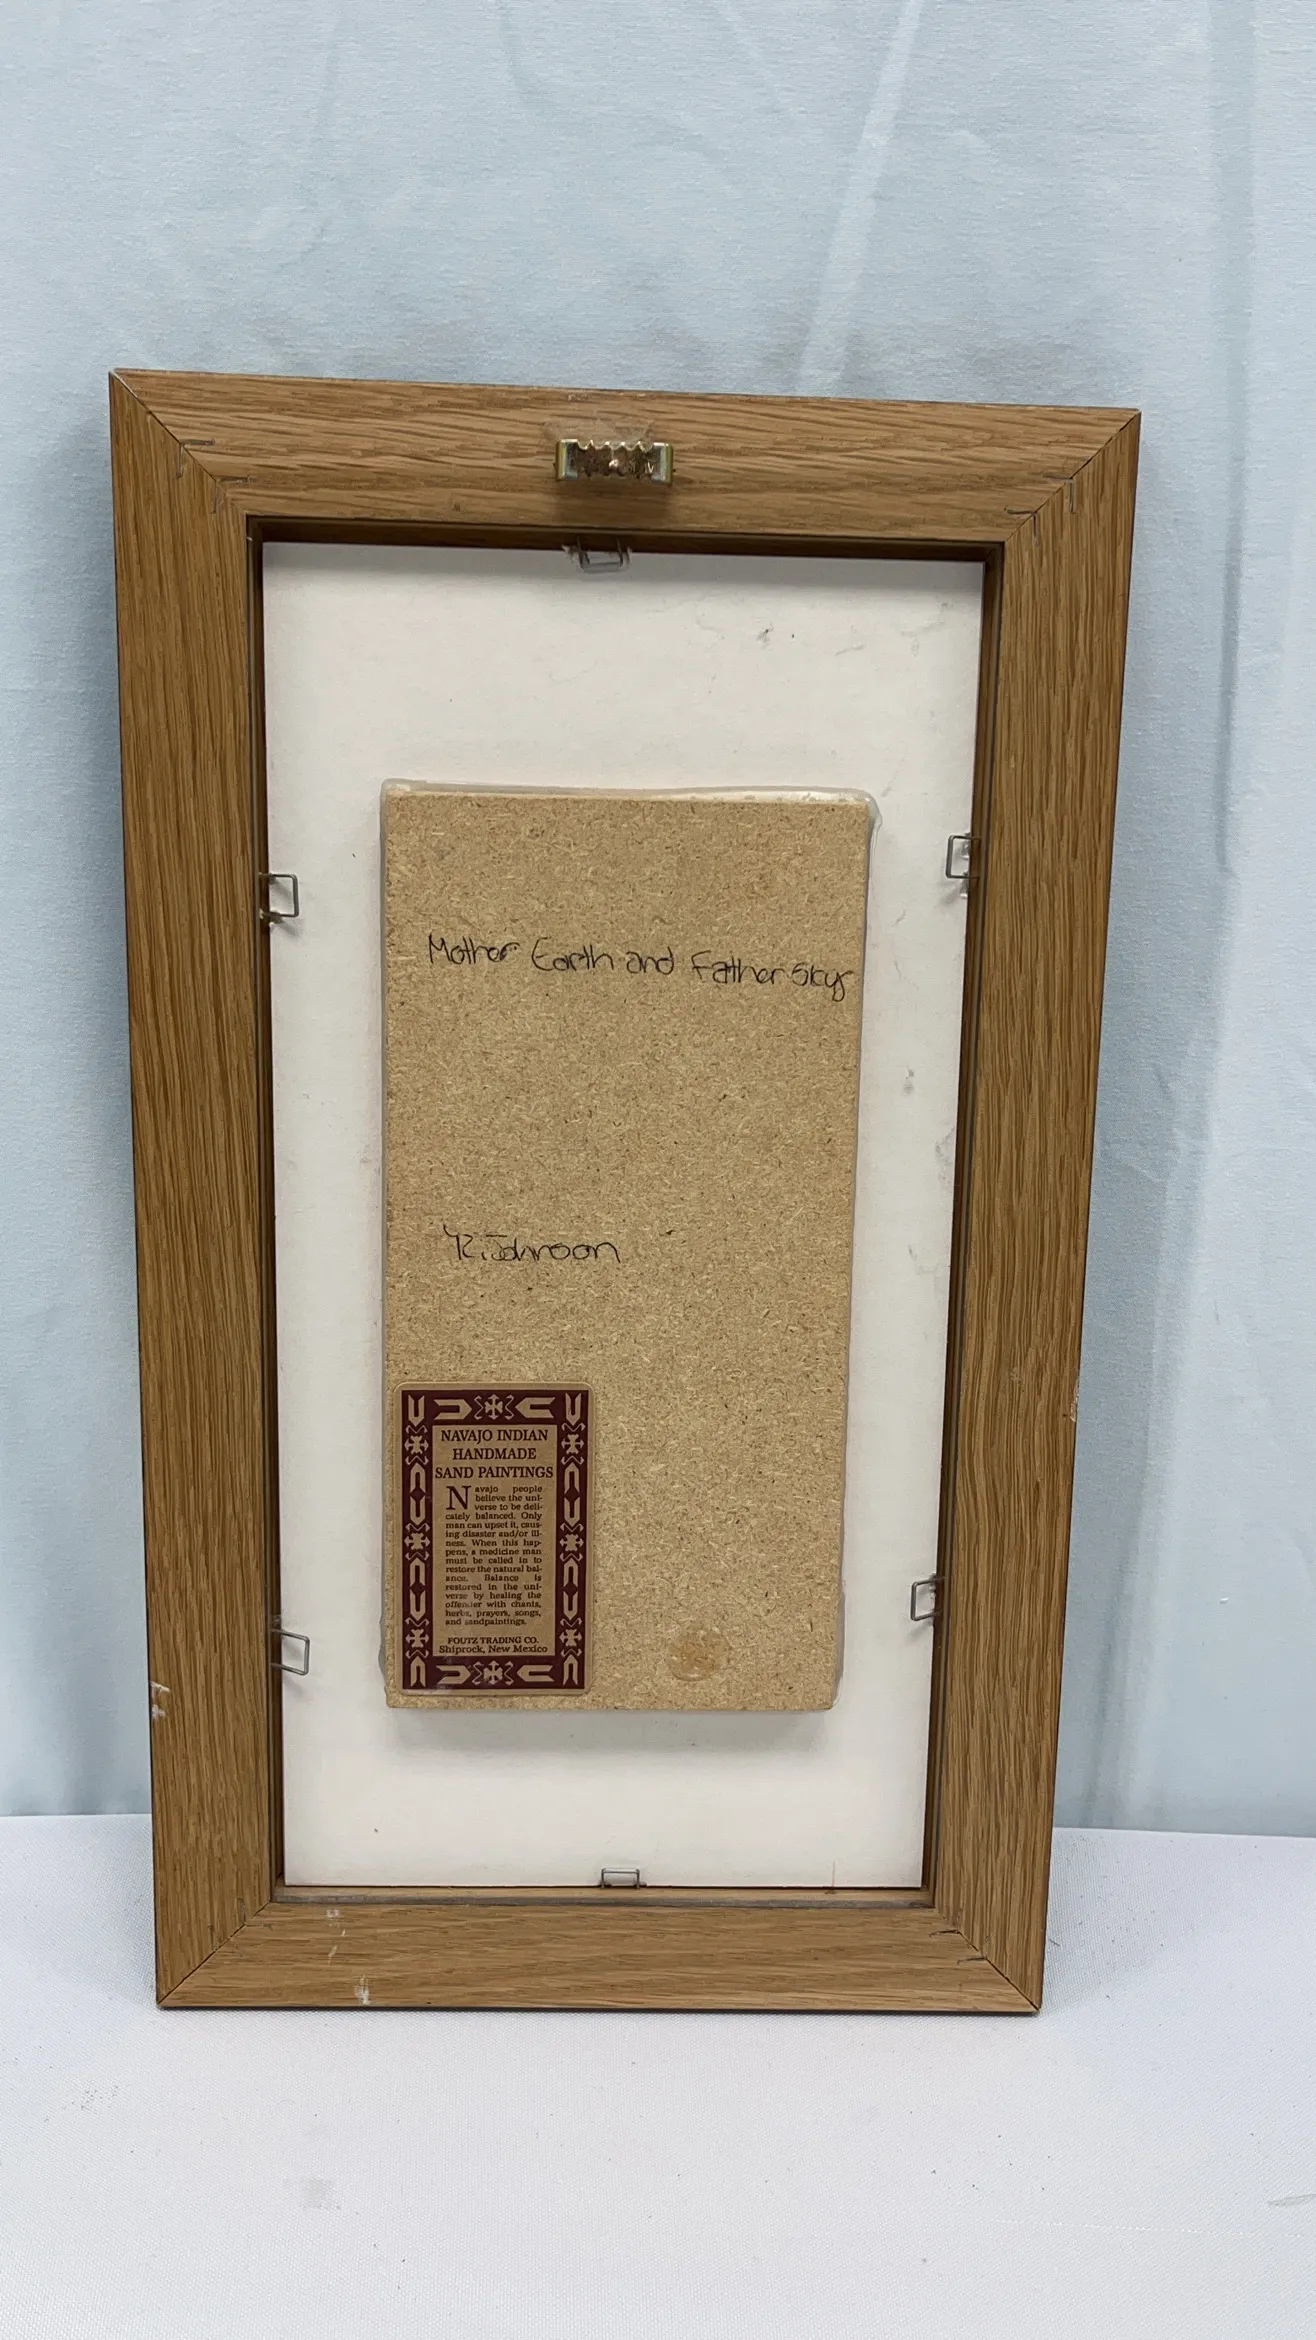 Mother Earth and Father Sky
R. Johnson
NAVAJO INDIAN
HANDMADE
SAND PAINTINGS
Navajo people
believe the uni-
verse to be deli-
cately balanced. Only
man can upset it, caus-
ing disaster and/or ill-
ness. When this hap-
pens, a medicine man
must be called in to
restore the natural bal-
ance. Balance is
restored in the uni-
verse by healing the
offender with chants,
herbs, prayers, songs,
and sandpaintings.
FOUTZ TRADING CO.
Shiprock, New Mexico